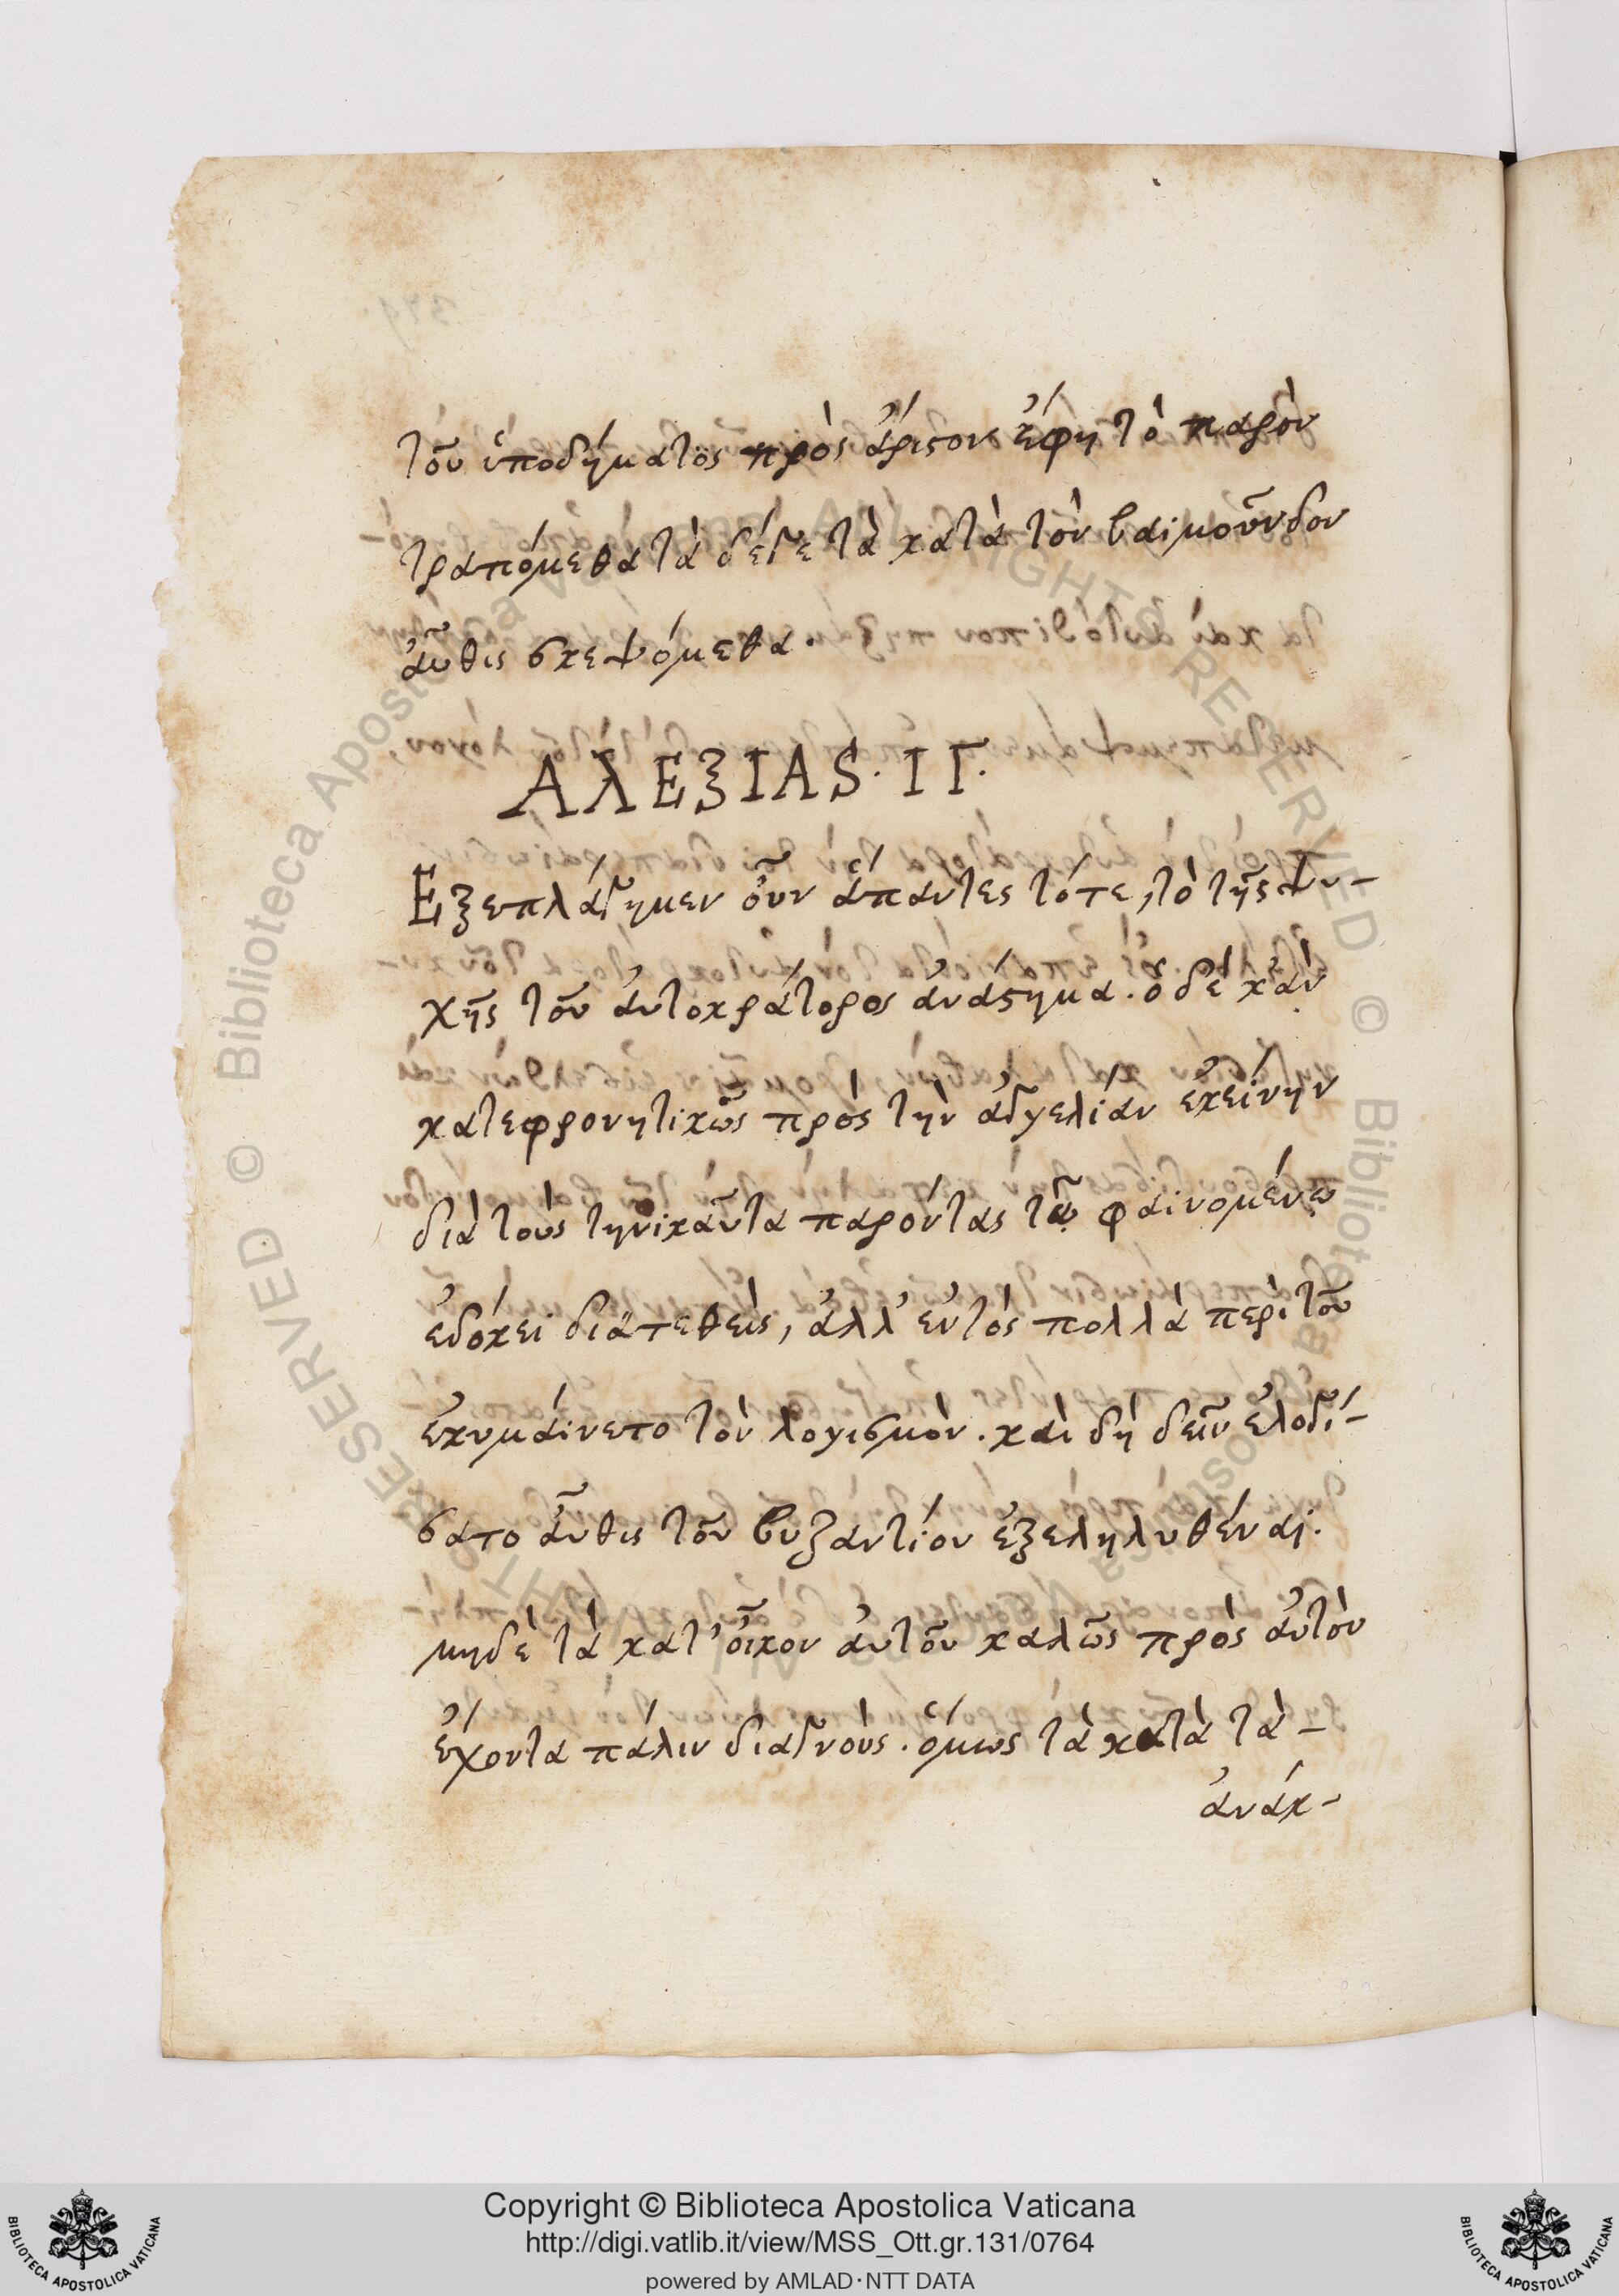 τοῦ ὑποδήματος πρὸς ἄριστον ἔφη τὸ παρὸν
τραπόμεθα τὰ δέγε τὰ κατὰ τὸν βαϊμοῦνδον
ἀῦθις σκεψόμεθα.
ΑΛΕΞΙΑS. ΙΓ.
Εξεπλάγημεν οὖν ἅπαντες τότε, τὸ τῆς ψυ-
χῆς τοῦ ἀυτοκράτορος ἀνάστημα. ὁ δὲ κἀν
κατεφρονητικῶς πρὸς τὴν ἀγγελίαν ἐκείνην
διὰ τοὺς τηνικαῦτα παρόντας τῷ φαινομένῳ
ἐδόκει διατεθεὶς, ἀλλ' ἐντὸς πολλὰ περὶ τοῦ
ἐκυμαίνετο τὸν λογισμὸν. καὶ δὴ δεῖν ἐλογί-
σατο ἀῦθις τοῦ βυζαντίου ἐξεληλυθέναι.
μηδὲ τὰ κατ' οἶκον ἀυτοῦ καλῶς πρὸς ἀυτὸν
ἔχοντα πάλιν διαγνοὺς. ὅμως τὰ κατὰ τὰ-
ἀνάκ-
Copyright © Biblioteca Apostolica Vaticana
http://digi.vatlib.it/view/MSS_Ott.gr.131/0764
powered by AMLAD·NTT DATA